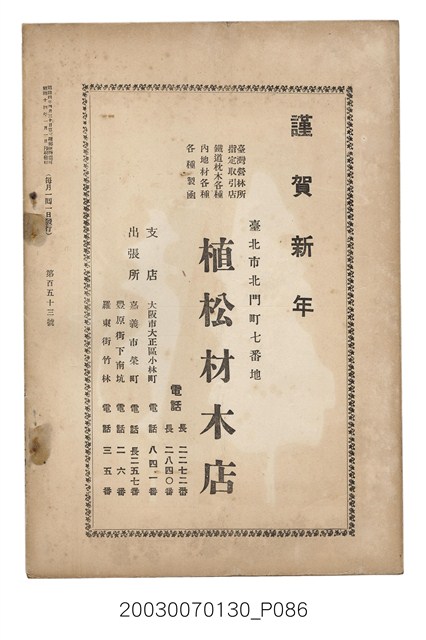 謹賀新年
臺灣營林所
指定取引店
鐵道枕木各種
內地材各種
各種製函
臺北市北門町七番地
植松材木店
電話 長二二七二番
長二八四〇番
支店 大阪市大正區小林町 電話 八四一番
出張所 嘉義市榮町 電話 長二五七番
豐原街下南坑 電話 二六番
羅東街竹林 電話 三五番
(每月一回一日發行)
第百五十三號
20030070130_P086